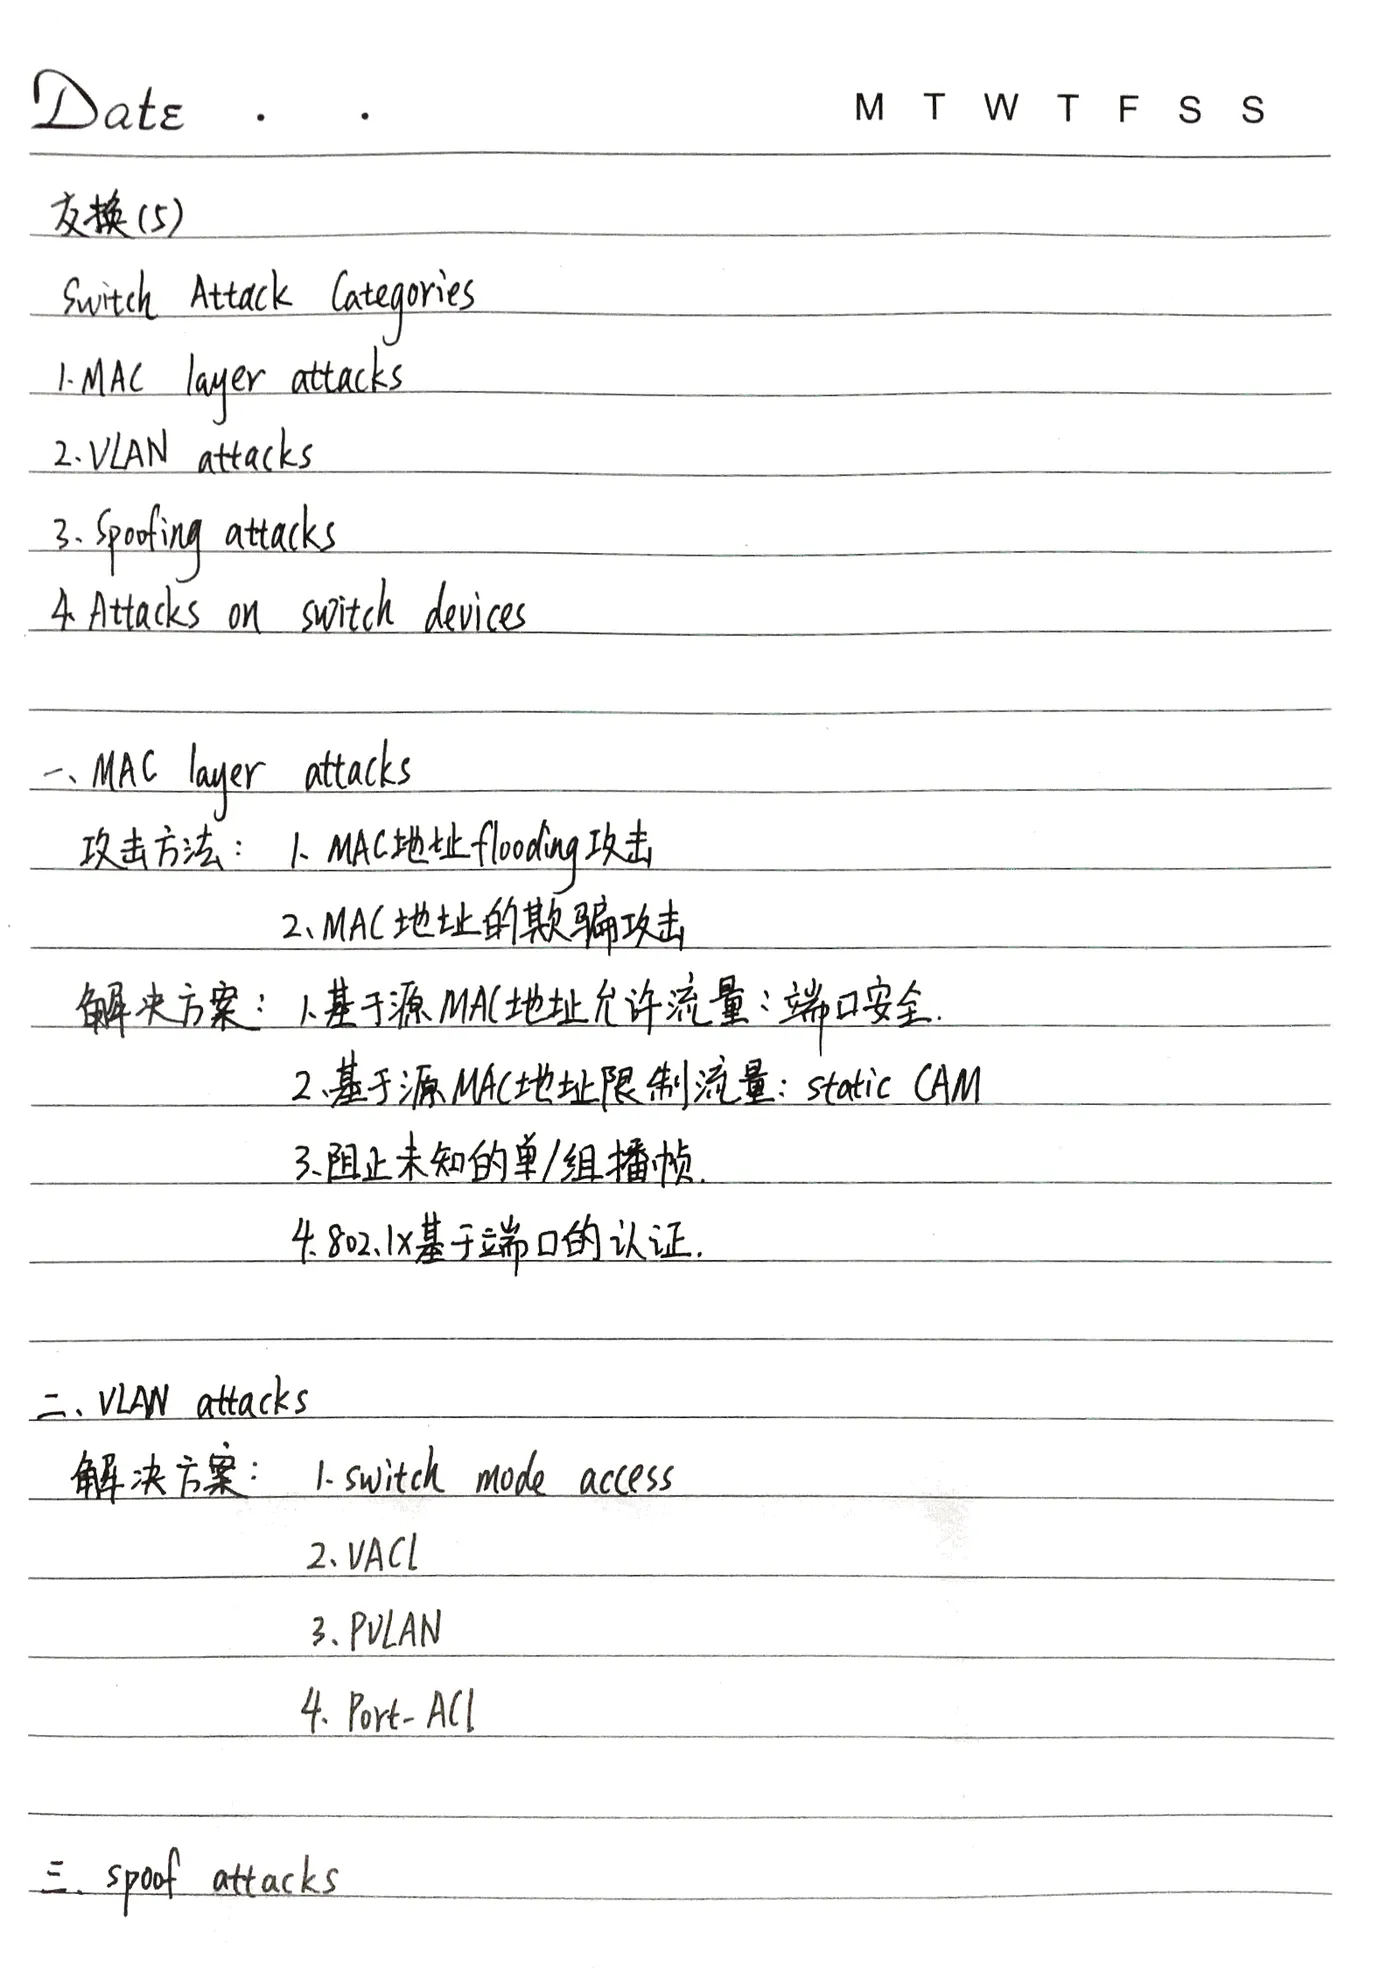 Date . .
M T W T F S S
交换(5)
Switch Attack Categories
1.MAC layer attacks
2.VLAN attacks
3.Spoofing attacks
4.Attacks on switch devices
一、MAC layer attacks
攻击方法： 1.MAC地址flooding攻击
2、MAC地址的欺骗攻击
解决方案： 1、基于源MAC地址允许流量：端口安全.
2、基于源MAC地址限制流量：static CAM
3、阻止未知的单/组播帧.
4.802.1x基于端口的认证.
二、VLAN attacks
解决方案： 1.switch mode access
2、VACL
3、PVLAN
4. Port-ACL
三. spoof attacks